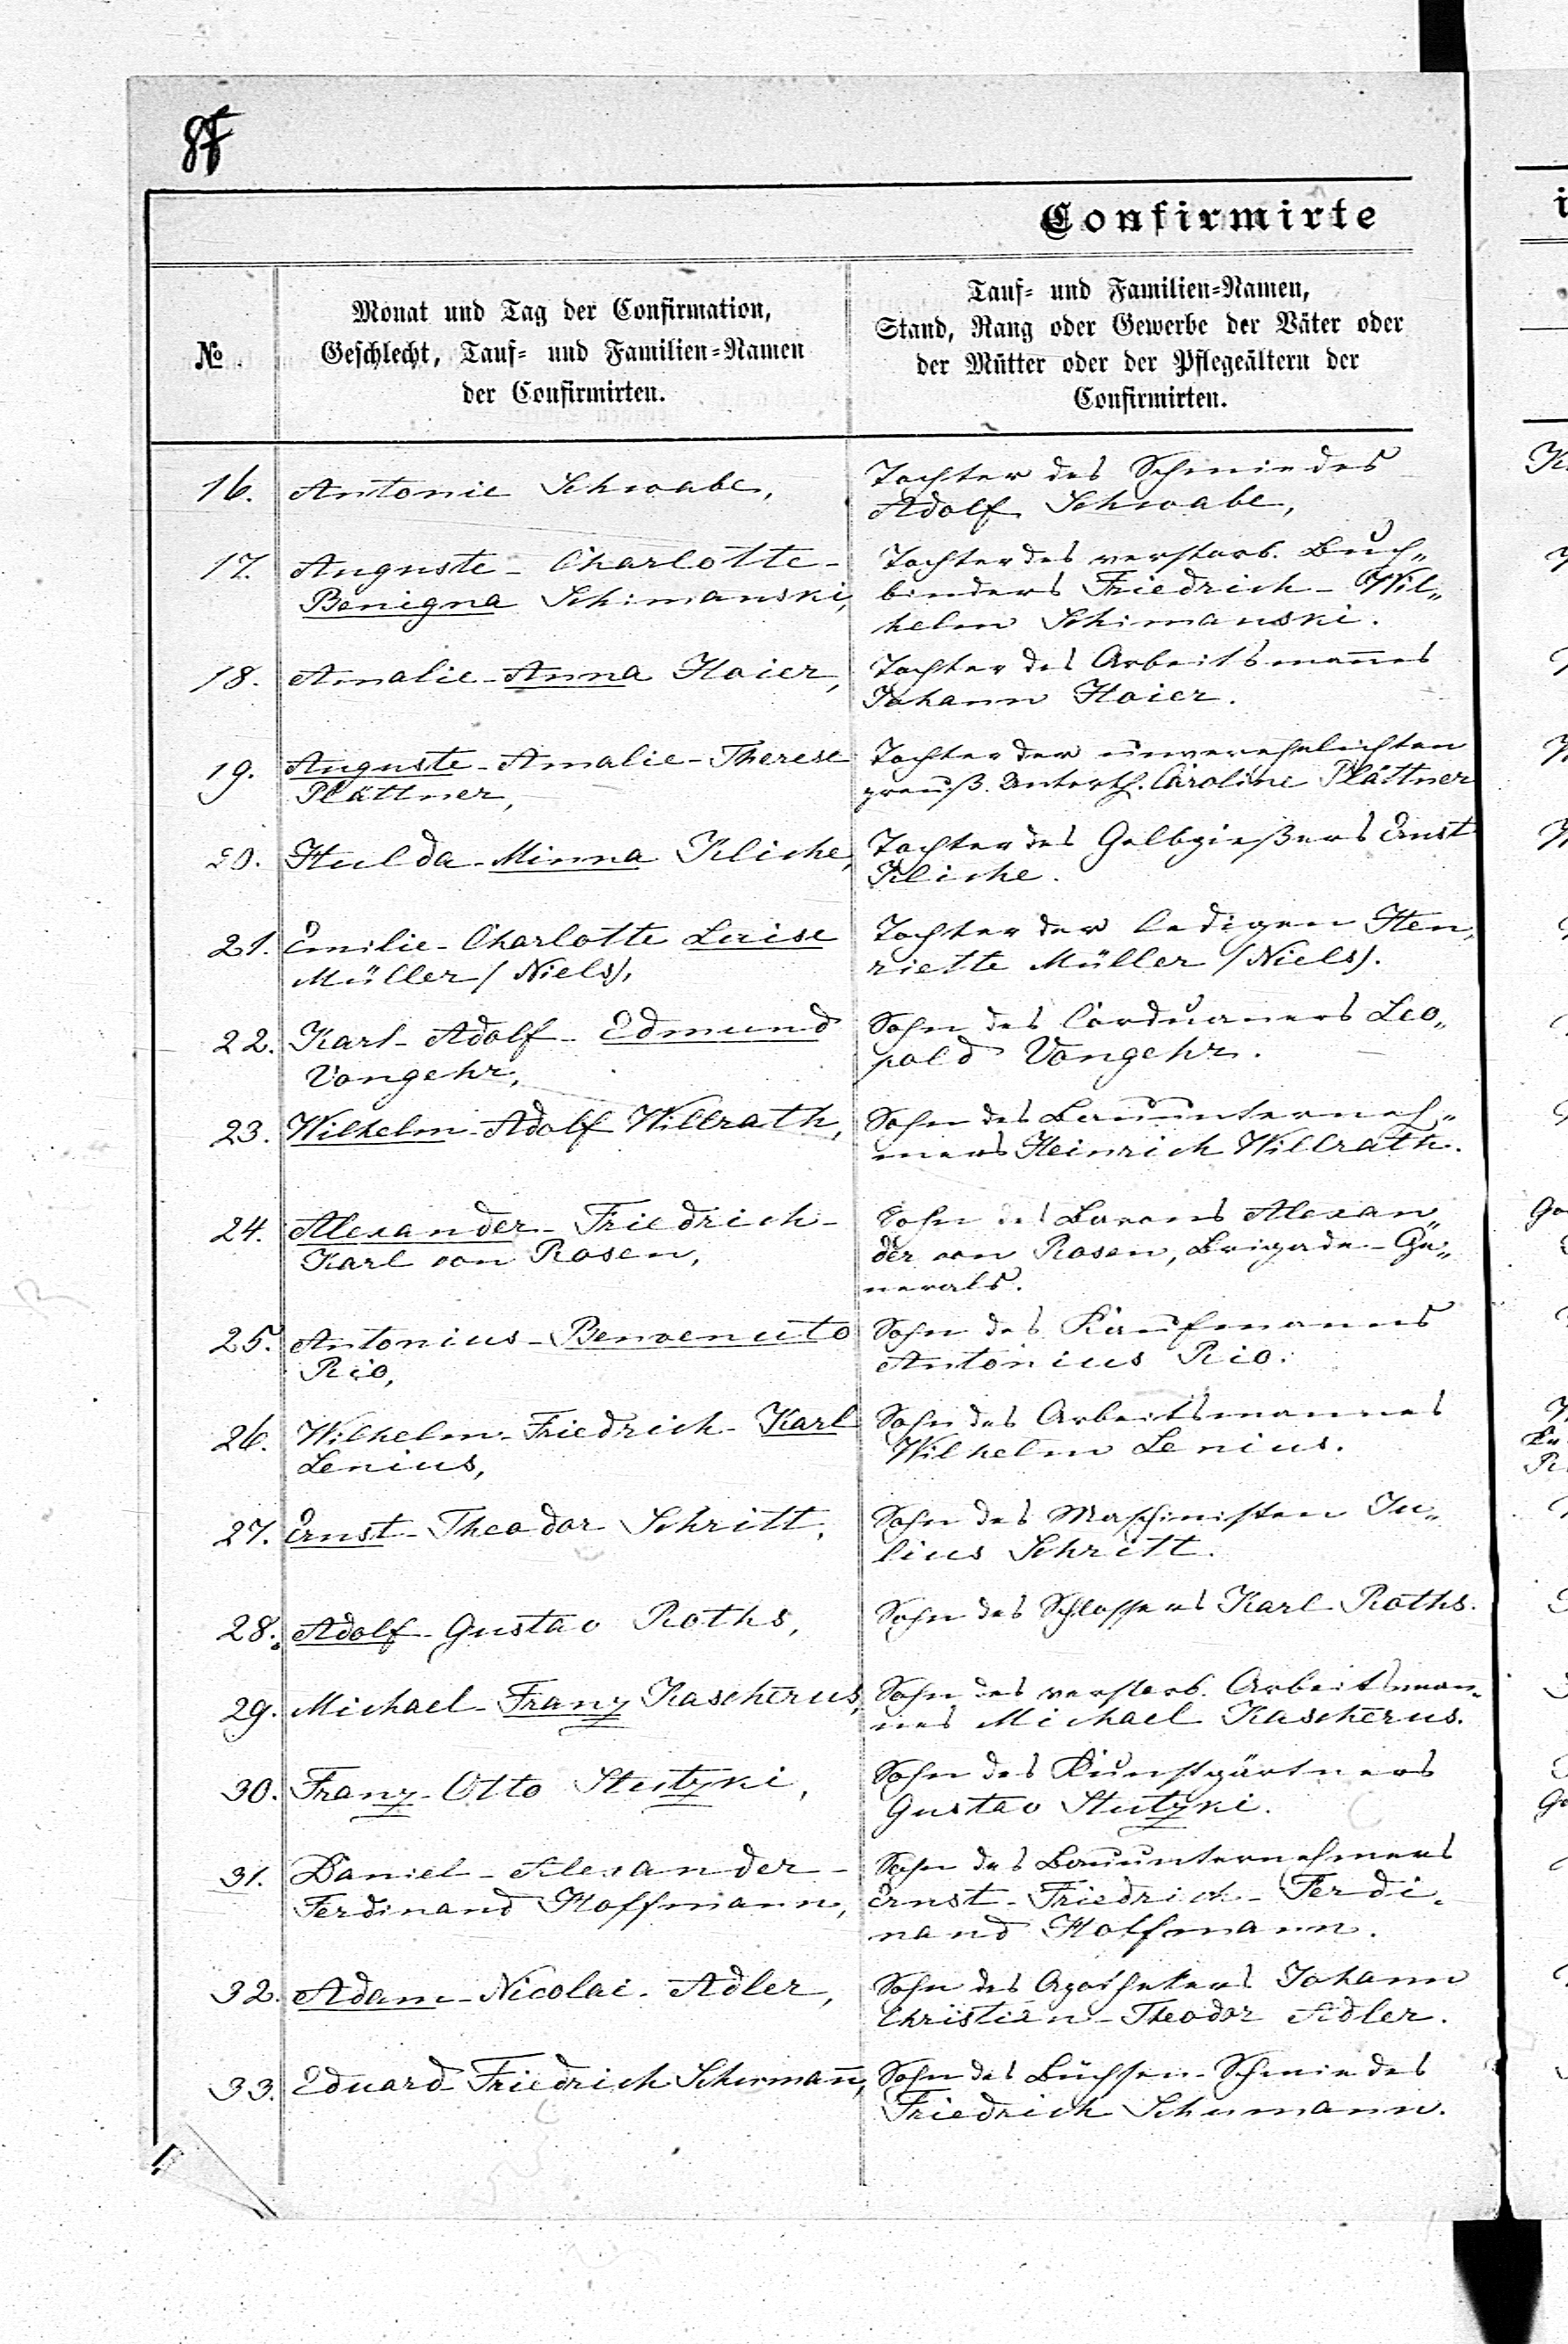 Confirmirte
№
Monat und Tag der Confirmation,
Geschlecht, Tauf- und Familien-Namen
der Confirmirten.
Tauf- und Familien-Namen,
Stand, Rang oder Gewerbe der Väter oder
der Mütter oder der Pflegeältern der
Confirmirten.
16. Antonie Schwabe,
Tochter des Schmiedes
Adolf Schwabe,
17. Auguste-Charlotte-
Benigna Schimanski,
Tochter des verstorb. Buch„
binders Friedrich-Wil„
helm Schimanski.
18. Amalie-Anna Hoier,
Tochter des Arbeitsman̄es
Johann Hoier.
19. Auguste-Amalie-Therese
Plättner,
Tochter der unverehelichten
preuß. Unterth. Caroline Plättner
20. Hulda-Minna Kliche,
Tochter des Gelbgießers Ernst
Kliche.
21. Emilie-Charlotte Luise
Müller /Niels/,
Tochter der ledigen Hen„
riette Müller /Niels/.
22. Karl-Adolf-Edmund
Vongehr,
Sohn des Corduaners Leo„
pold Vongehr.
23. Wilhelm-Adolf Willrath,
Sohn des Bauunterneh„
mers Heinrich Willrath.
24. Alexander-Friedrich-
Karl von Rosen,
Sohn des Barons Alexan„
der von Rosen, Brigade-Ge„
nerals.
25. Antonius-Benvenuto
Rio,
Sohn des Kaufmanns
Antonius Rio.
26. Wilhelm-Friedrich-Karl
Lenius,
Sohn des Arbeitsmannes
Wilhelm Lenius.
27. Ernst-Theodor Schritt,
Sohn des Maschinisten Ju„
lius Schritt.
28. Adolf-Gustav Roths,
Sohn des Schlossers Karl Roths.
29. Michael-Franz Kascherus,
Sohn des verstorb. Arbeitsman„
nes Michael Kascherus.
30. Franz-Otto Stutzki,
Sohn des Kunstgärtners
Gustav Stutzki.
31. Daniel-Alexander-
Ferdinand Hoffmann,
Sohn des Bauunternehmers
Ernst-Friedrich-Ferdi„
nand Hoffmann.
32. Adam-Nicolai-Adler,
Sohn des Apothekers Johann
Christian-Theodor Adler.
33. Eduard Friedrich Schuman̄,
Sohn des Büchsen-Schmiedes
Friedrich Schumann.